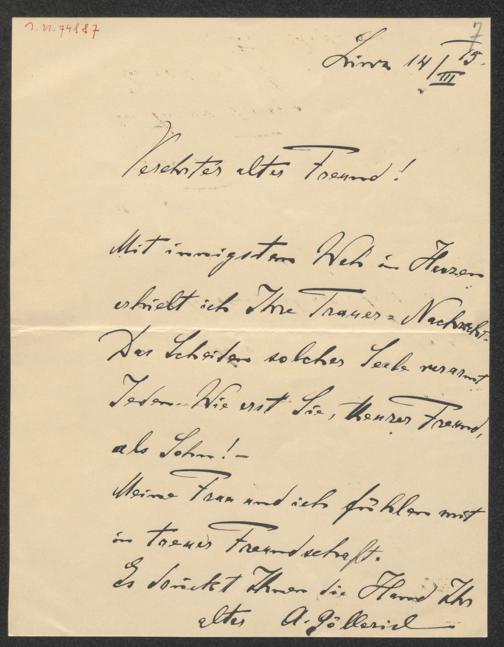 J. N. 74887
7
Linz 14/III 15.
Verehrter alter Freund!
Mit innigstem Weh im Herzen
erhielt ich Ihre Trauer=Nachricht.
Das Scheiden solcher Seele verarmt
Jeden. Wie erst Sie, theurer Freund,
als Sohn! –
Meine Frau und ich fühlen mit
in treuer Freundschaft.
Es drückt Ihnen die Hand Ihr
alter A. Göllerich